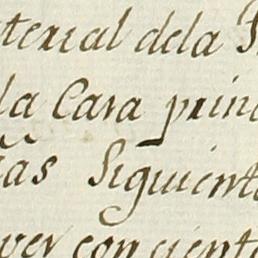 terial dela
la Cara prin
as Siguiente
ver con ciento